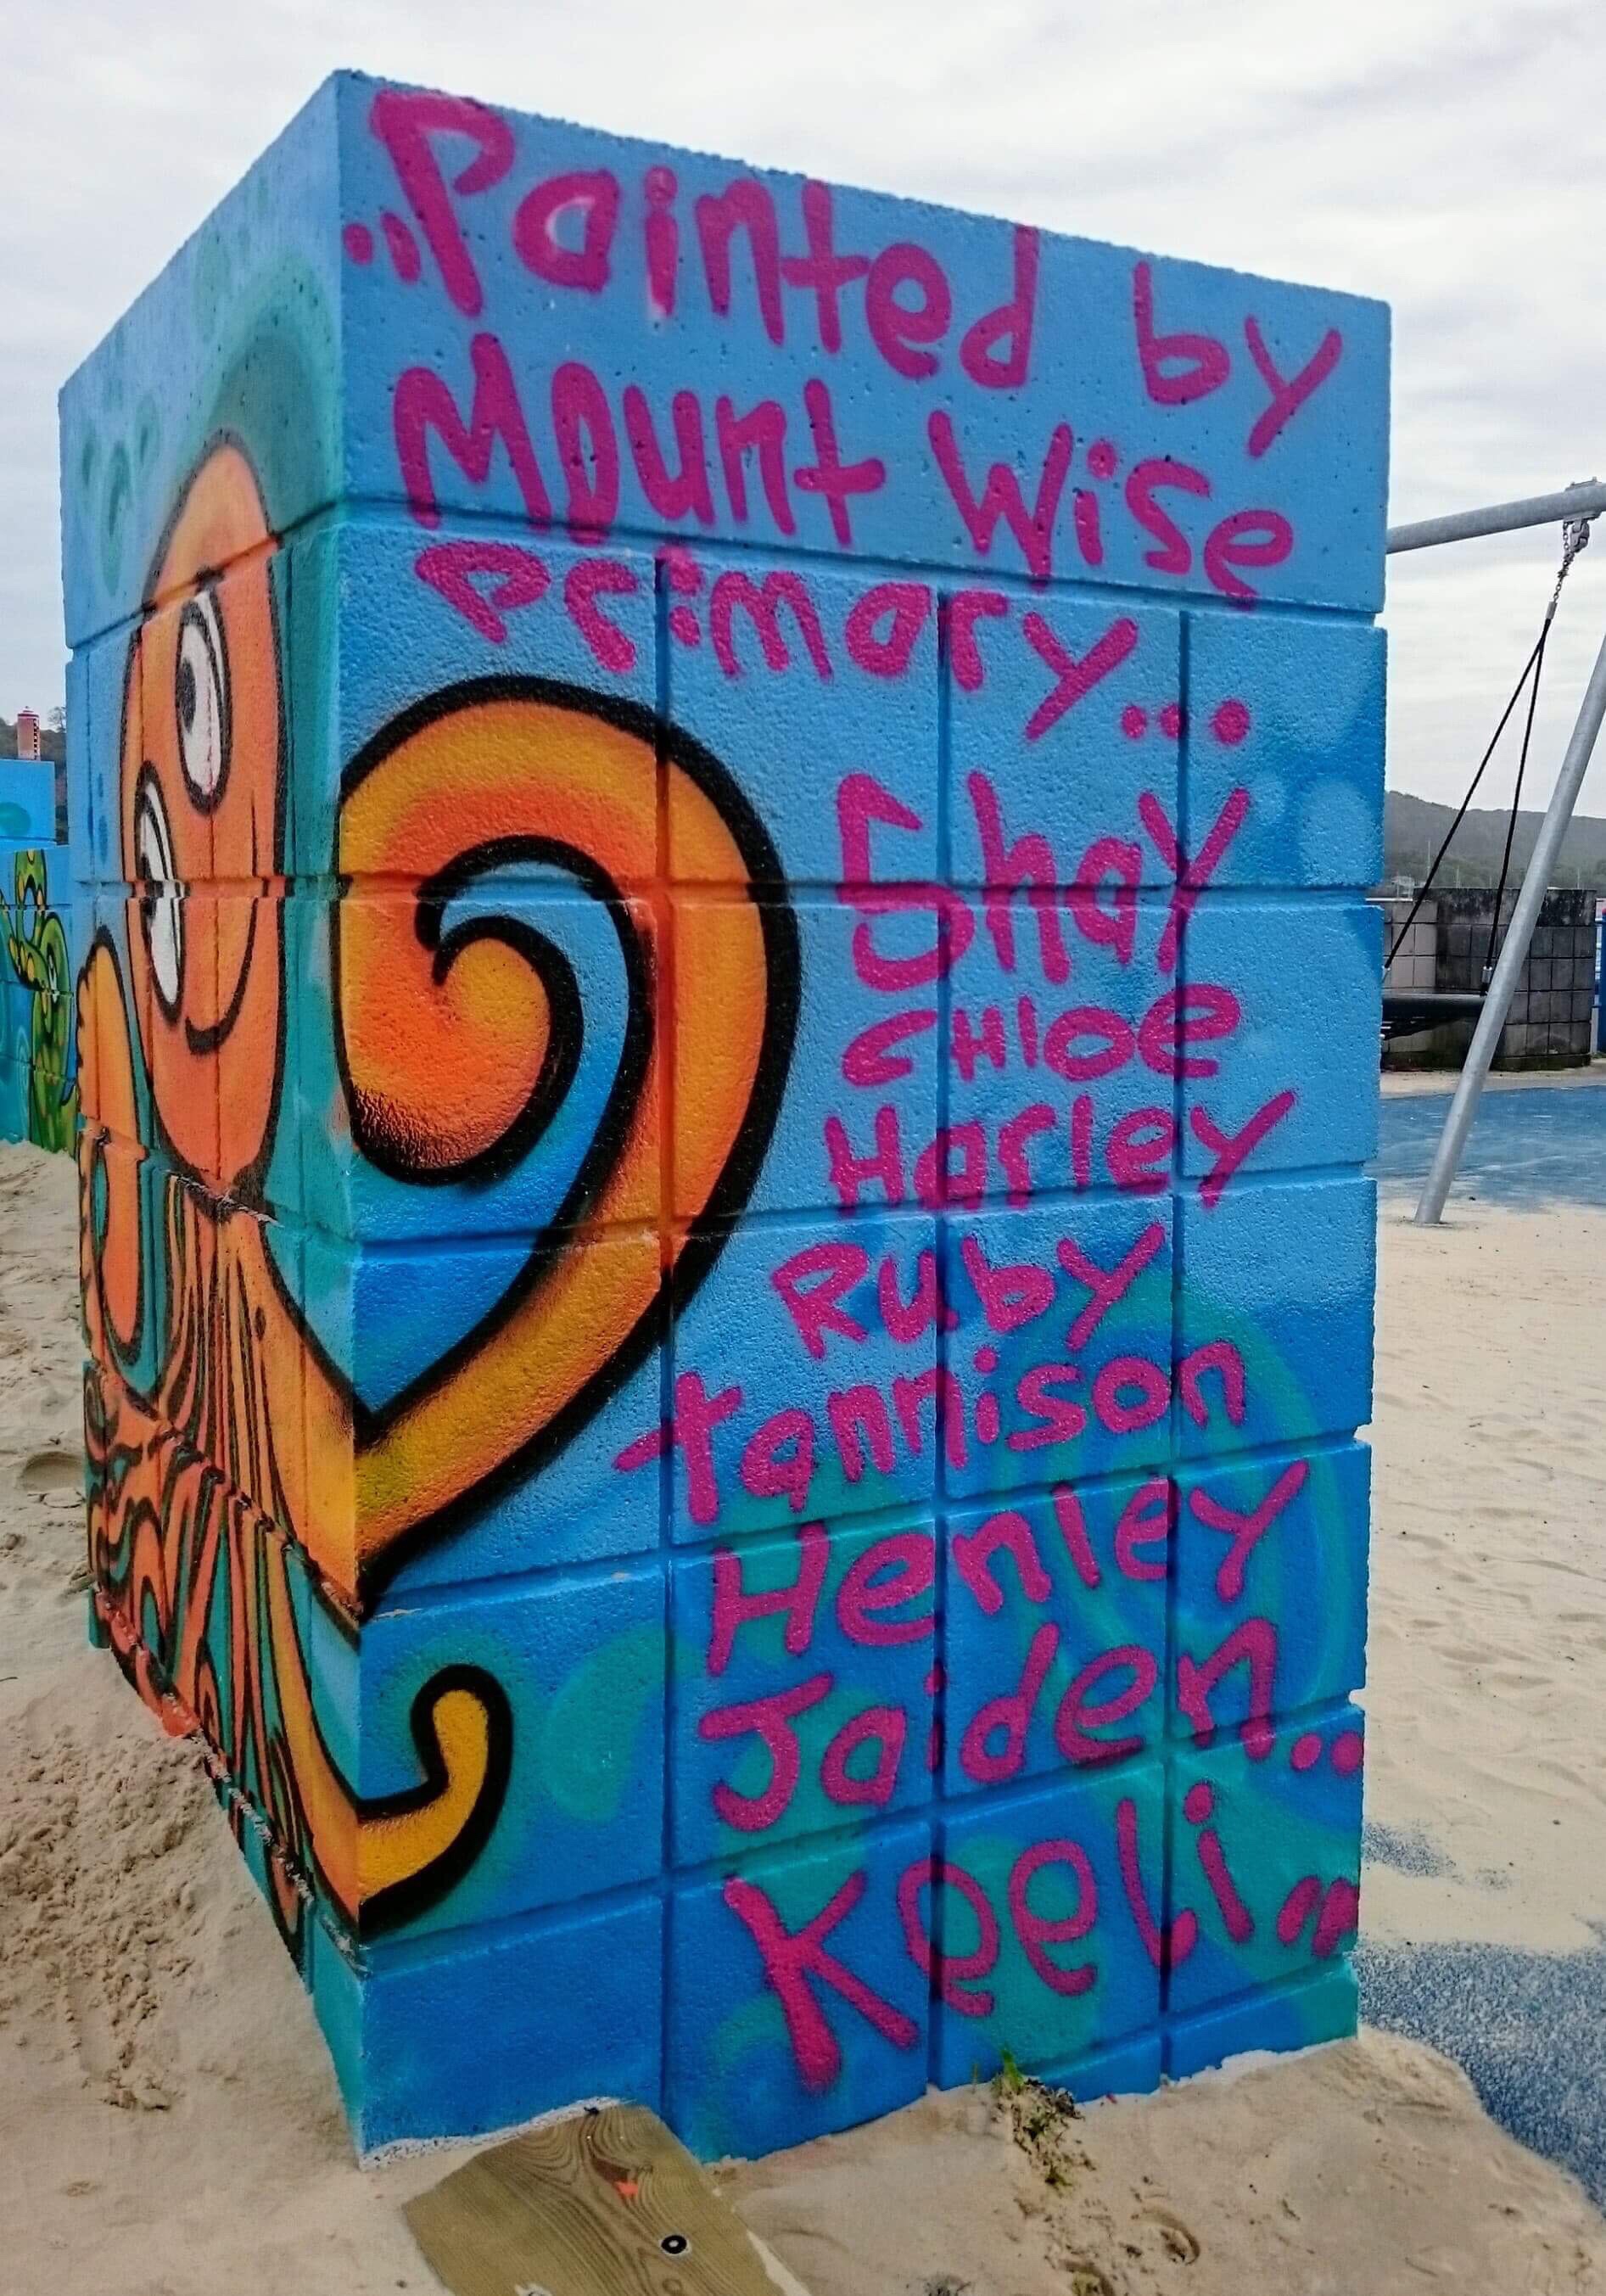 „Painted by
Mount Wise
Primary...
Shay
CHloe
Harley
Ruby
tannison
Henley
Jaiden..
Keeli"